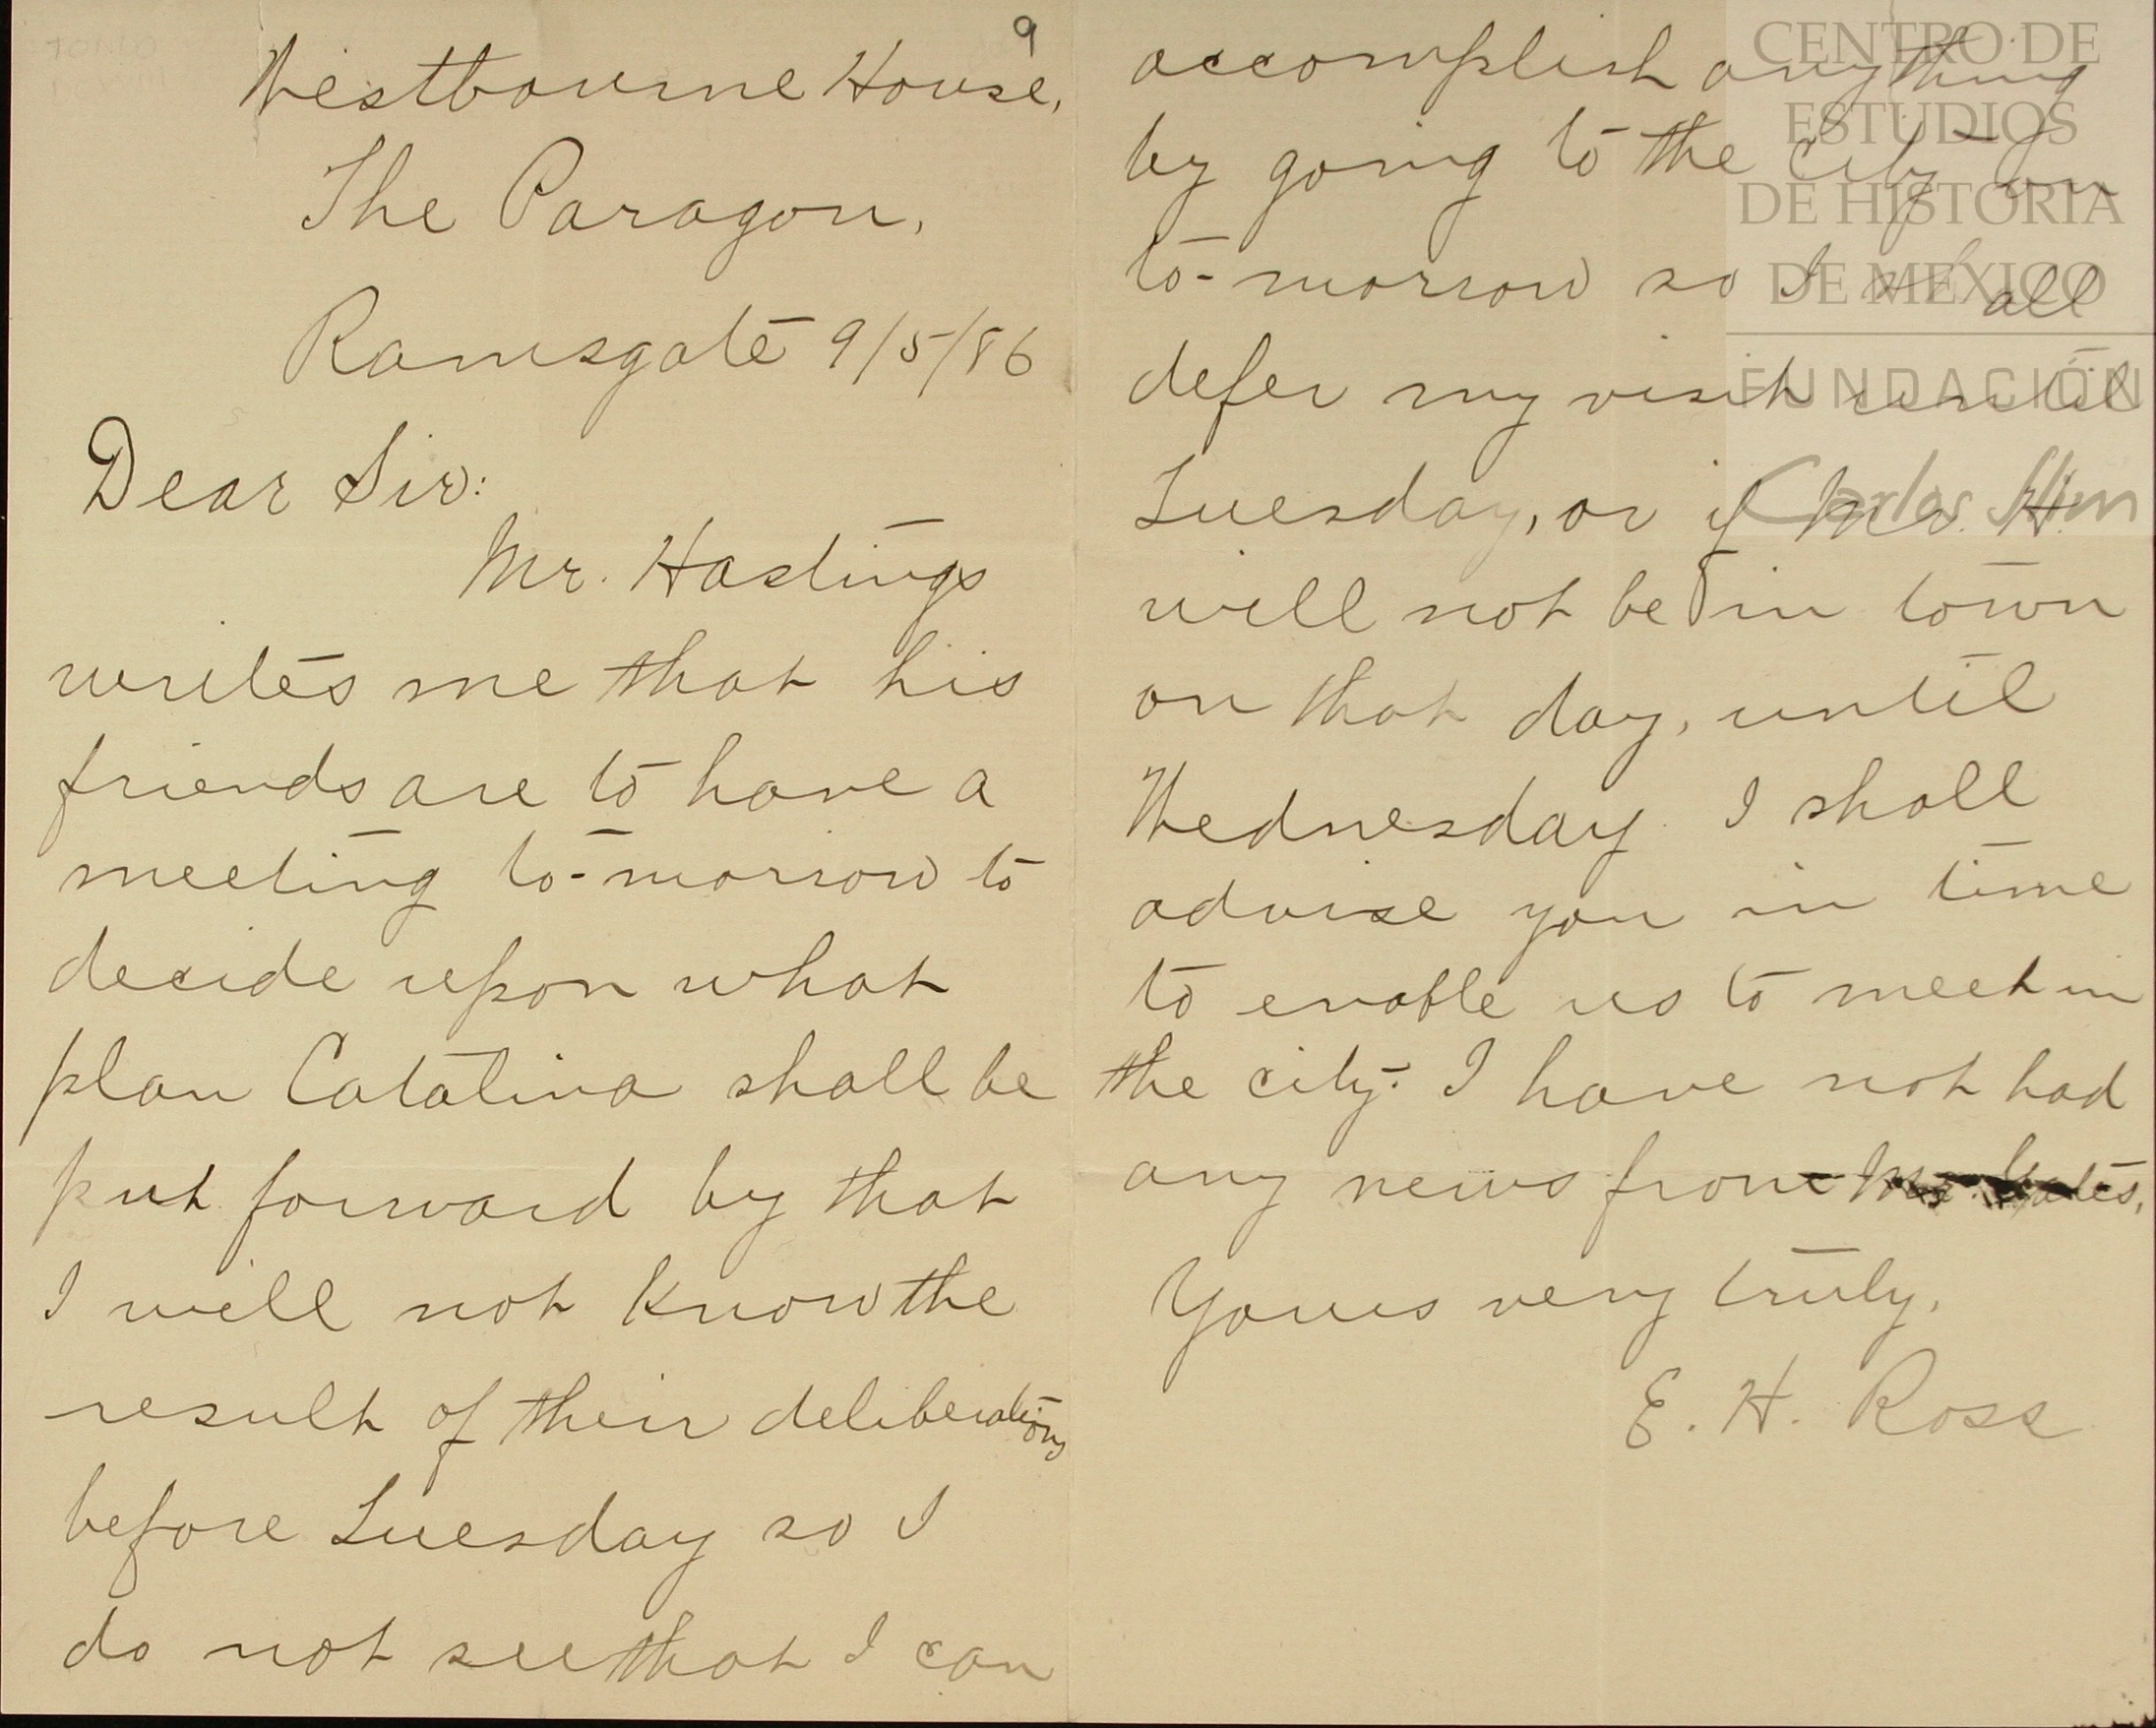 9
Westbourne House,
The Paragon,
Ramsgate 9/5/86
Dear Sir:
Mr. Hastings
writes me that his
friends are to have a
meeting to-morrow to
decide upon what
plan Catalina shall be
put forward by that
I will not know the
result of their deliberations
before Tuesday so I
do not see that I can
accomplish anything
by going to the city on
to-morrow so I shall
defer my visit until
Tuesday, or if Mr. H.
will not be in town
on that day, until
Wednesday. I shall
advise you in time
to enable us to meet in
the city. I have not had
any news from Mr.
Yours very truly,
E. H. Ross
CENTRO DE
ESTUDIOS
DE HISTORIA
DE MEXICO
FUNDACIÓN
Carlos Slim